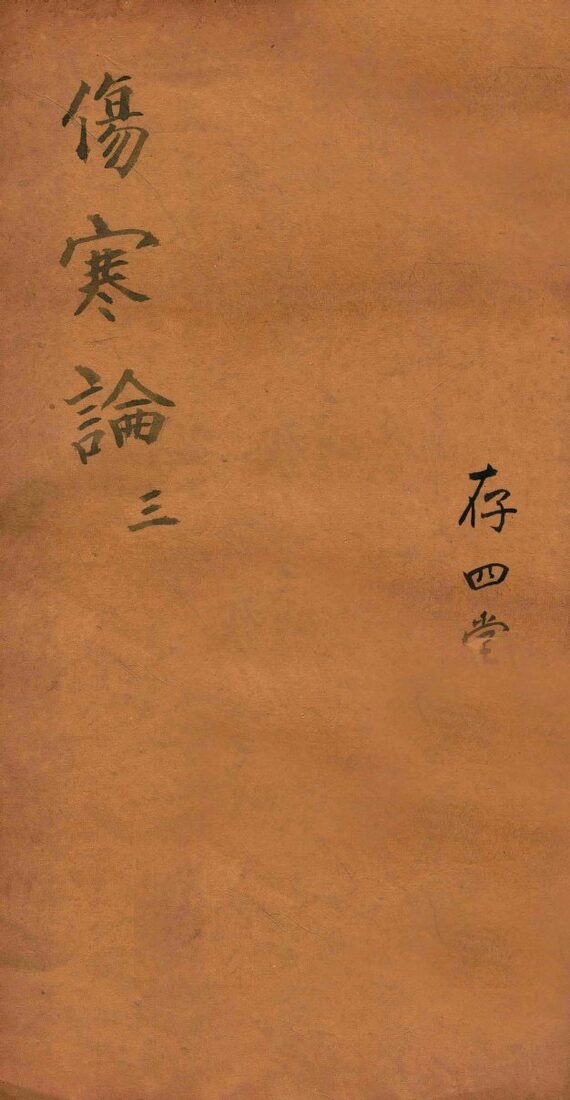 存四堂
傷寒論
三